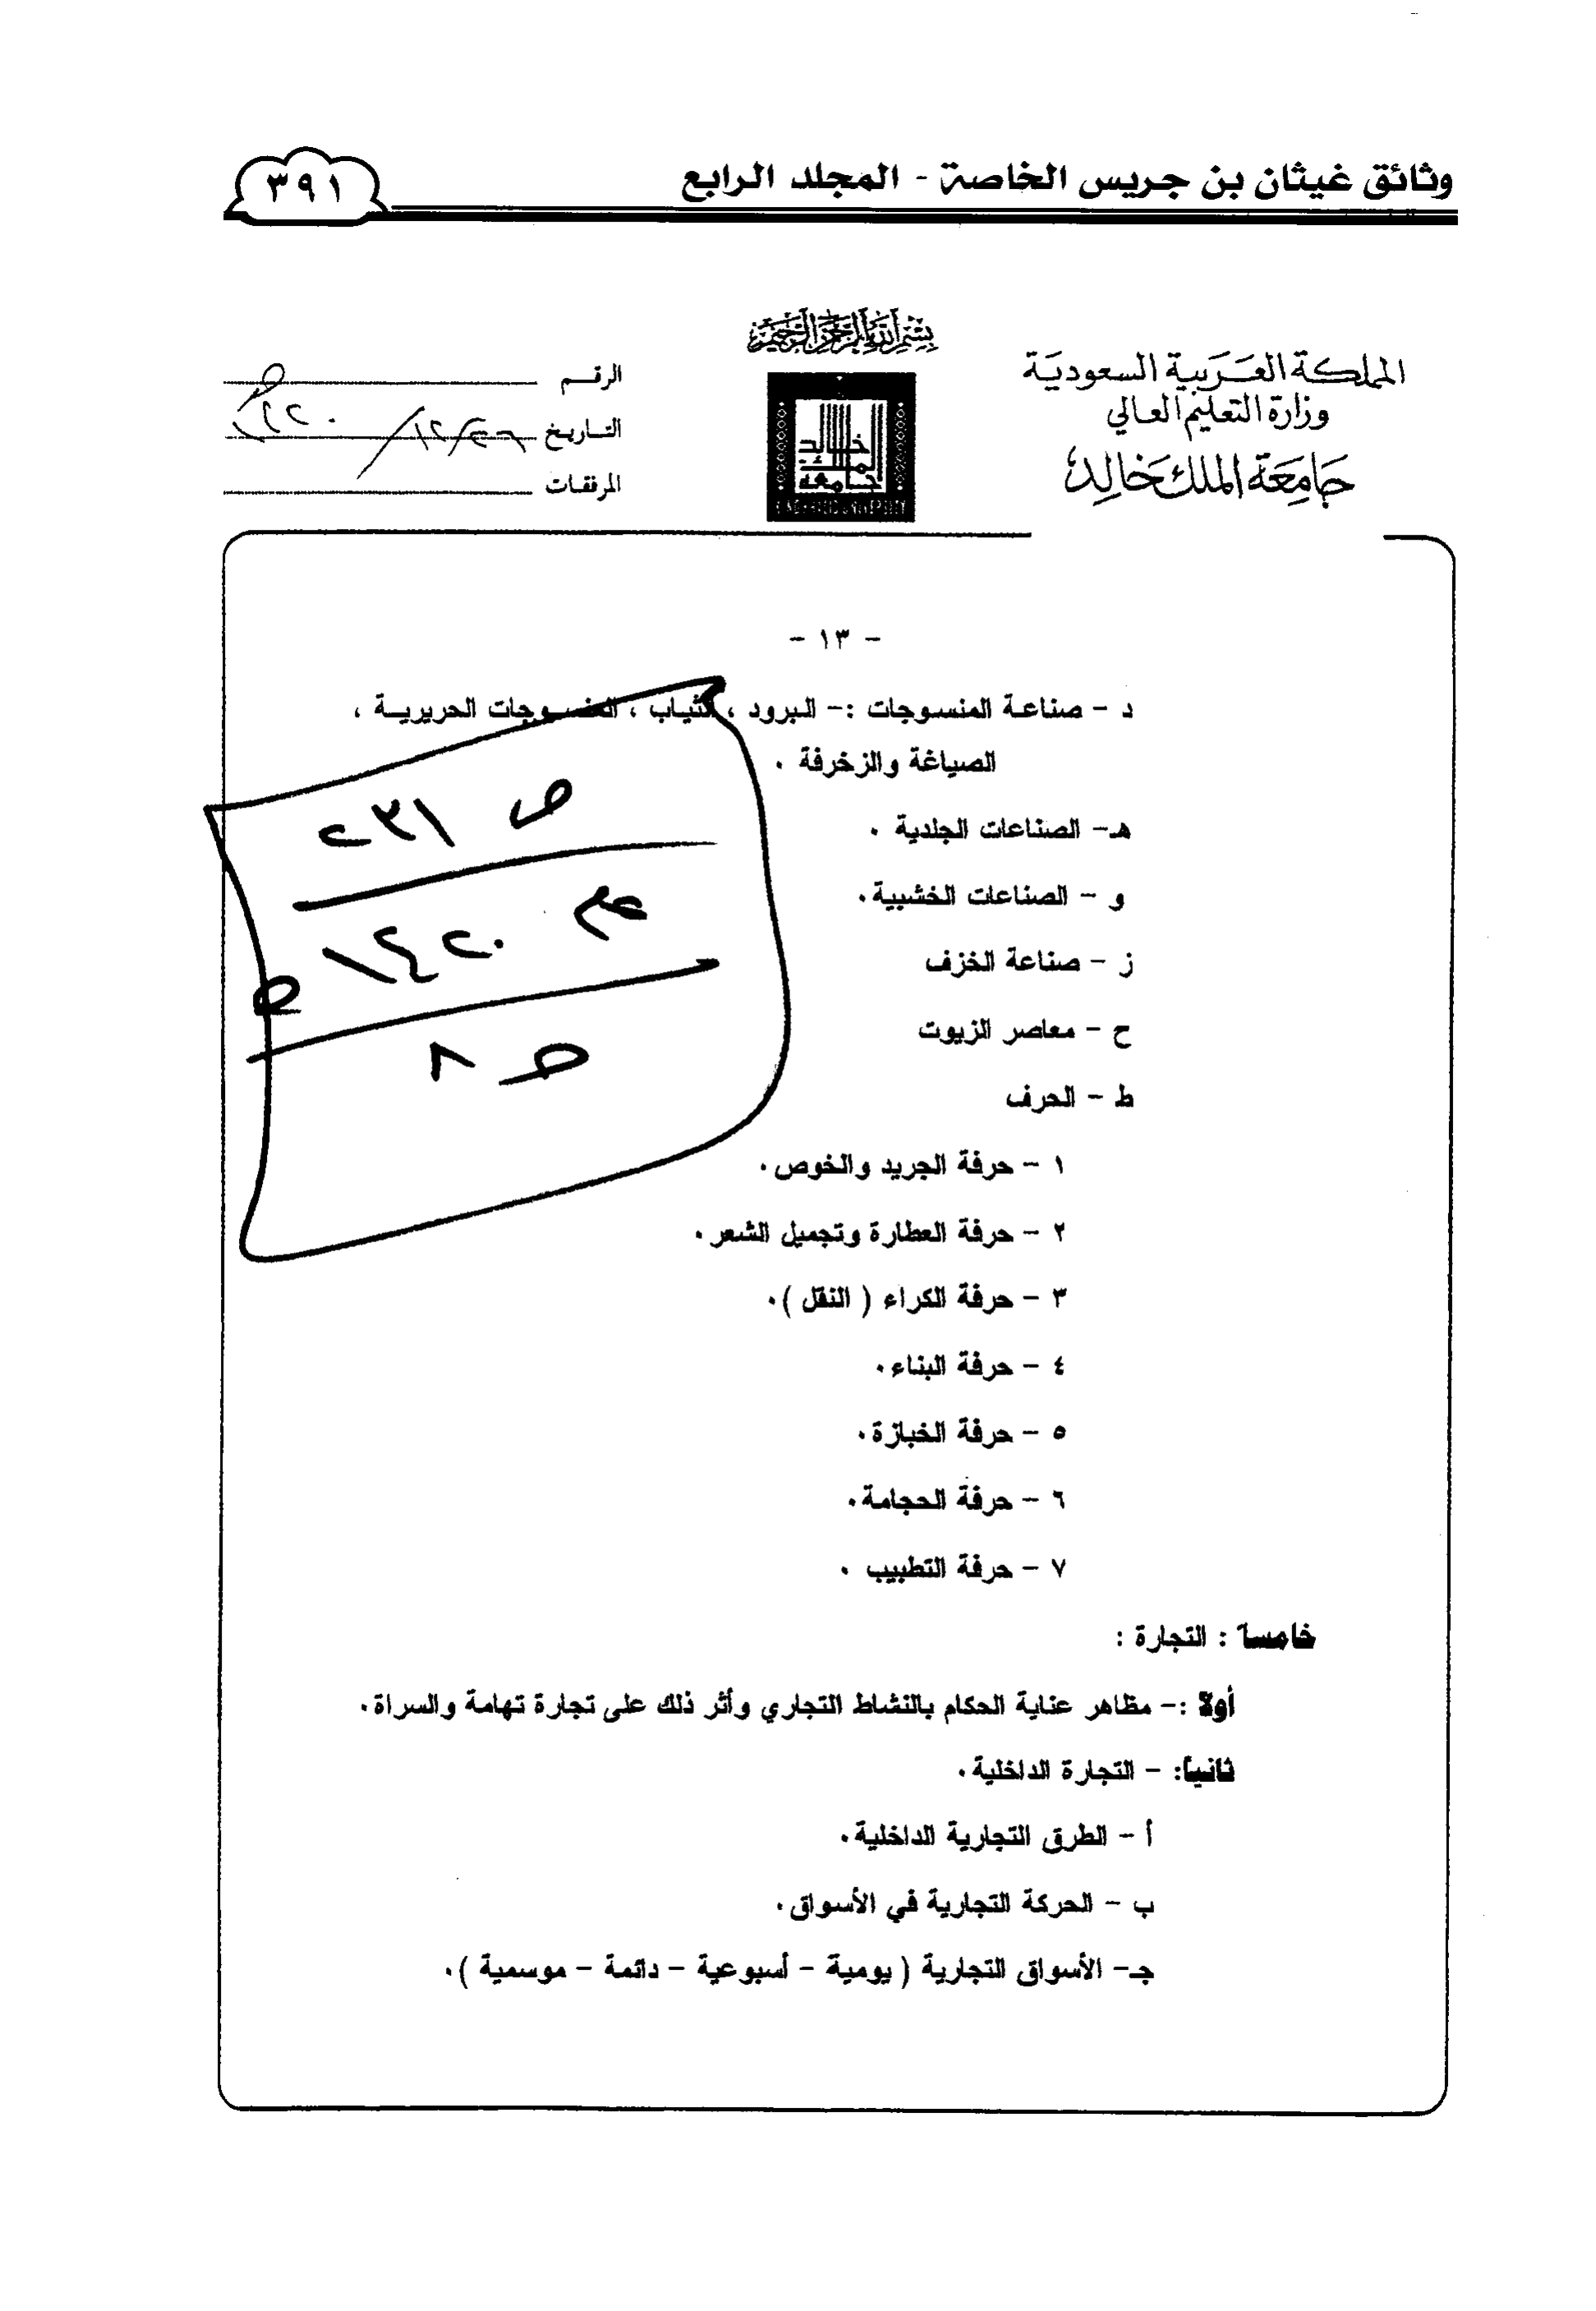 وثائق غيثان بن جريس الخاصة - المجلد الرابع
٣٩١
بسم الله الرحمن الرحيم
المملكة العربية السعودية
وزارة التعليم العالي
جامعة الملك خالد
الرقم
التاريخ
المرفقات
جامعة الملك خالد
KING KHALID UNIVERSITY
- ١٣ -
د - صناعة المنسوجات :- البرود ، الثياب ، المنسوجات الحريرية ،
الصياغة والزخرفة .
هـ- الصناعات الجلدية .
و - الصناعات الخشبية .
ز - صناعة الخزف
ح - معاصر الزيوت
ط - الحرف
١ - حرفة الجريد والخوص .
٢ - حرفة العطارة وتجميل الشعر .
٣ - حرفة الكراء ( النقل ) .
٤ - حرفة البناء .
٥ - حرفة الخبازة .
٦ - حرفة الحجامة .
٧ - حرفة التطبيب .
خامسا : التجارة :
أولا :- مظاهر عناية الحكام بالنشاط التجاري وأثر ذلك على تجارة تهامة والسراة .
ثانيا: - التجارة الداخلية .
أ - الطرق التجارية الداخلية .
ب - الحركة التجارية في الأسواق .
جـ- الأسواق التجارية ( يومية - أسبوعية - دائمة - موسمية ) .